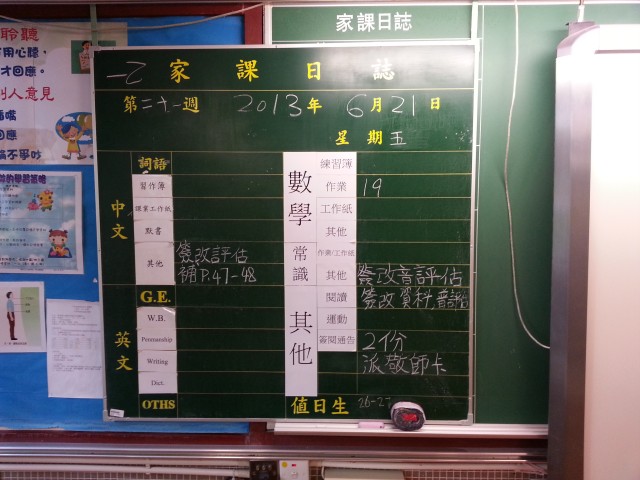 家課日誌
聆聽
用心聽,
才回應。
別人意見
回應
不爭吵
一乙 家課日誌
第二十一週 2013年 6月21日
星期五
中文
詞語
習作簿
課業工作紙
默書
其他 簽改評估
補P.47-48
英文
G.E.
W.B.
Penmanship
Writing
Dict.
OTHS
數學
練習簿
作業 19
工作紙
其他
常識
作業/工作紙
其他 簽改音評估
其他
閱讀 簽改質料普評估
運動
簽閱通告 2份
派敬師卡
值日生 26-27